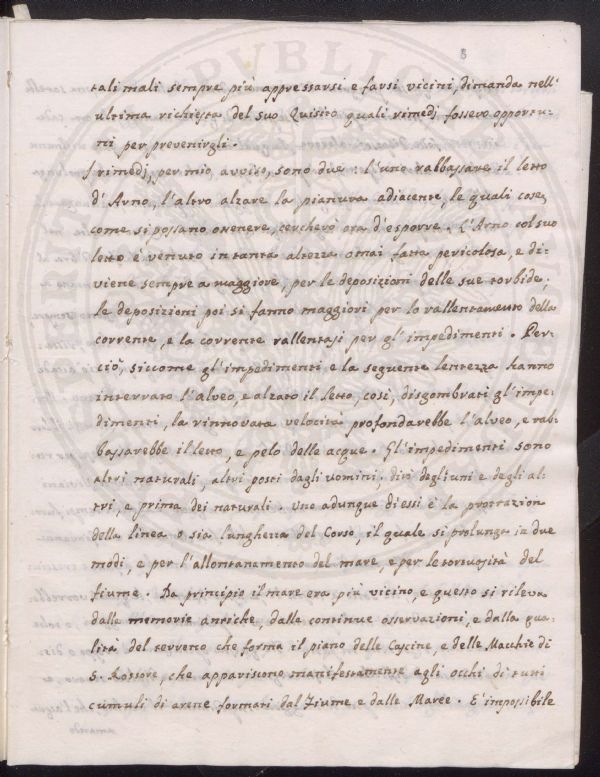 8
tali mali sempre più appressarsi e farsi vicini, dimanda nell'
ultima richiesta del suo Quisito quali rimedj fossero opportu-
ni per prevenirgli.
I rimedj, per mio avviso, sono due: l'uno rabbassare il letto
d'Arno, l'altro alzare la pianura adiacente, le quali cose,
come si possano ottenere, cercherò ora d'esporre. L'Arno col suo
letto è venuto in tanta altezza omai fatta pericolosa, e di-
viene sempre a maggiore, per le deposizioni delle sue torbide;
le deposizioni poi si fanno maggiori per lo rallentamento della
corrente, e la corrente rallentasi per gl'impedimenti. Per-
ciò, siccome gl'impedimenti e la seguente lentezza hanno
interrato l'alveo, e alzato il letto, così, disgombrati gl'impe-
dimenti, la rinnovata velocità profondarebbe l'alveo, e rab-
bassarebbe il letto, e pelo delle acque. Gl'impedimenti sono
altri naturali, altri posti dagli uomini. dirò degli uni e degli al-
tri, e prima dei naturali. uno adunque di essi è la protrazion
della linea o sia lunghezza del Corso, il quale si prolunga in due
modi, e per l'allontanamento dal mare, e per le tortuosità del
fiume. Da principio il mare era più vicino, e questo si rileva
dalle memorie antiche, dalle continue osservazioni, e dalla qua-
lità del terreno che forma il piano delle Cascine, e delle Macchie di
S. Rossore, che appariscono manifestamente agli occhi di tutti
cumuli di arene formati dal Fiume e dalle Maree. E' impossibile